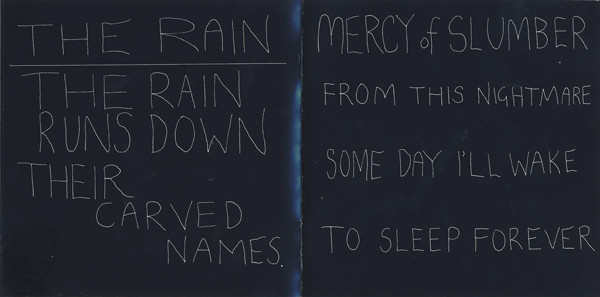 THE RAIN
THE RAIN
RUNS DOWN
THEIR
CARVED
NAMES.
MERCY of SLUMBER
FROM THIS NIGHTMARE
SOME DAY I'LL WAKE
TO SLEEP FOREVER